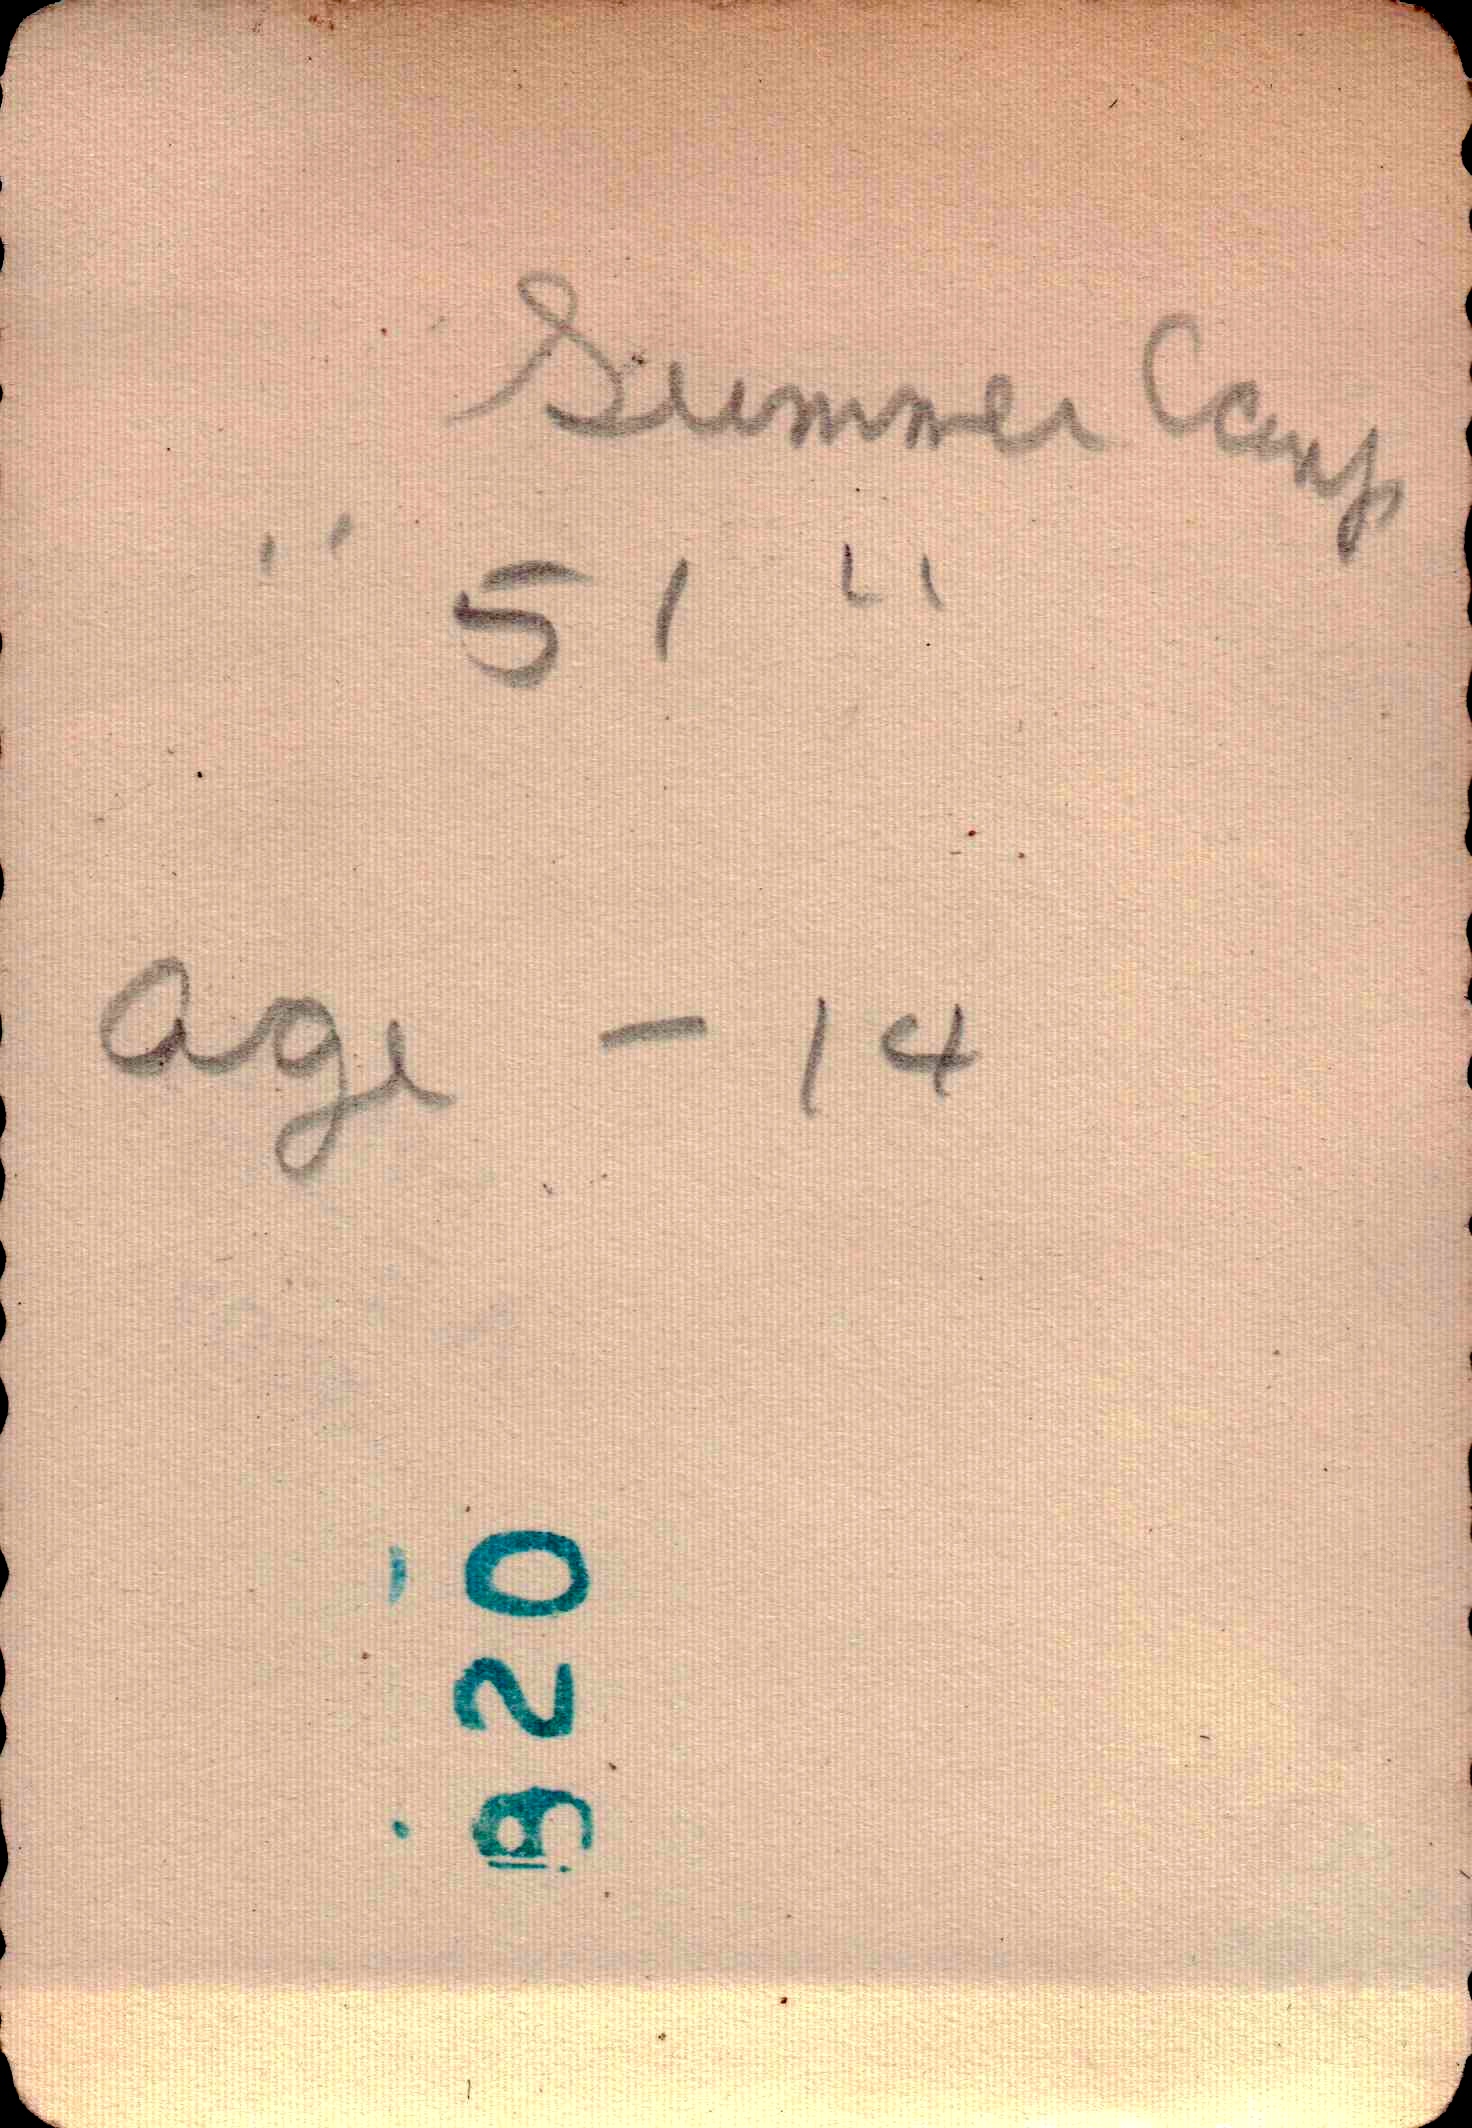 Summer Camp
" 51 "
age - 14